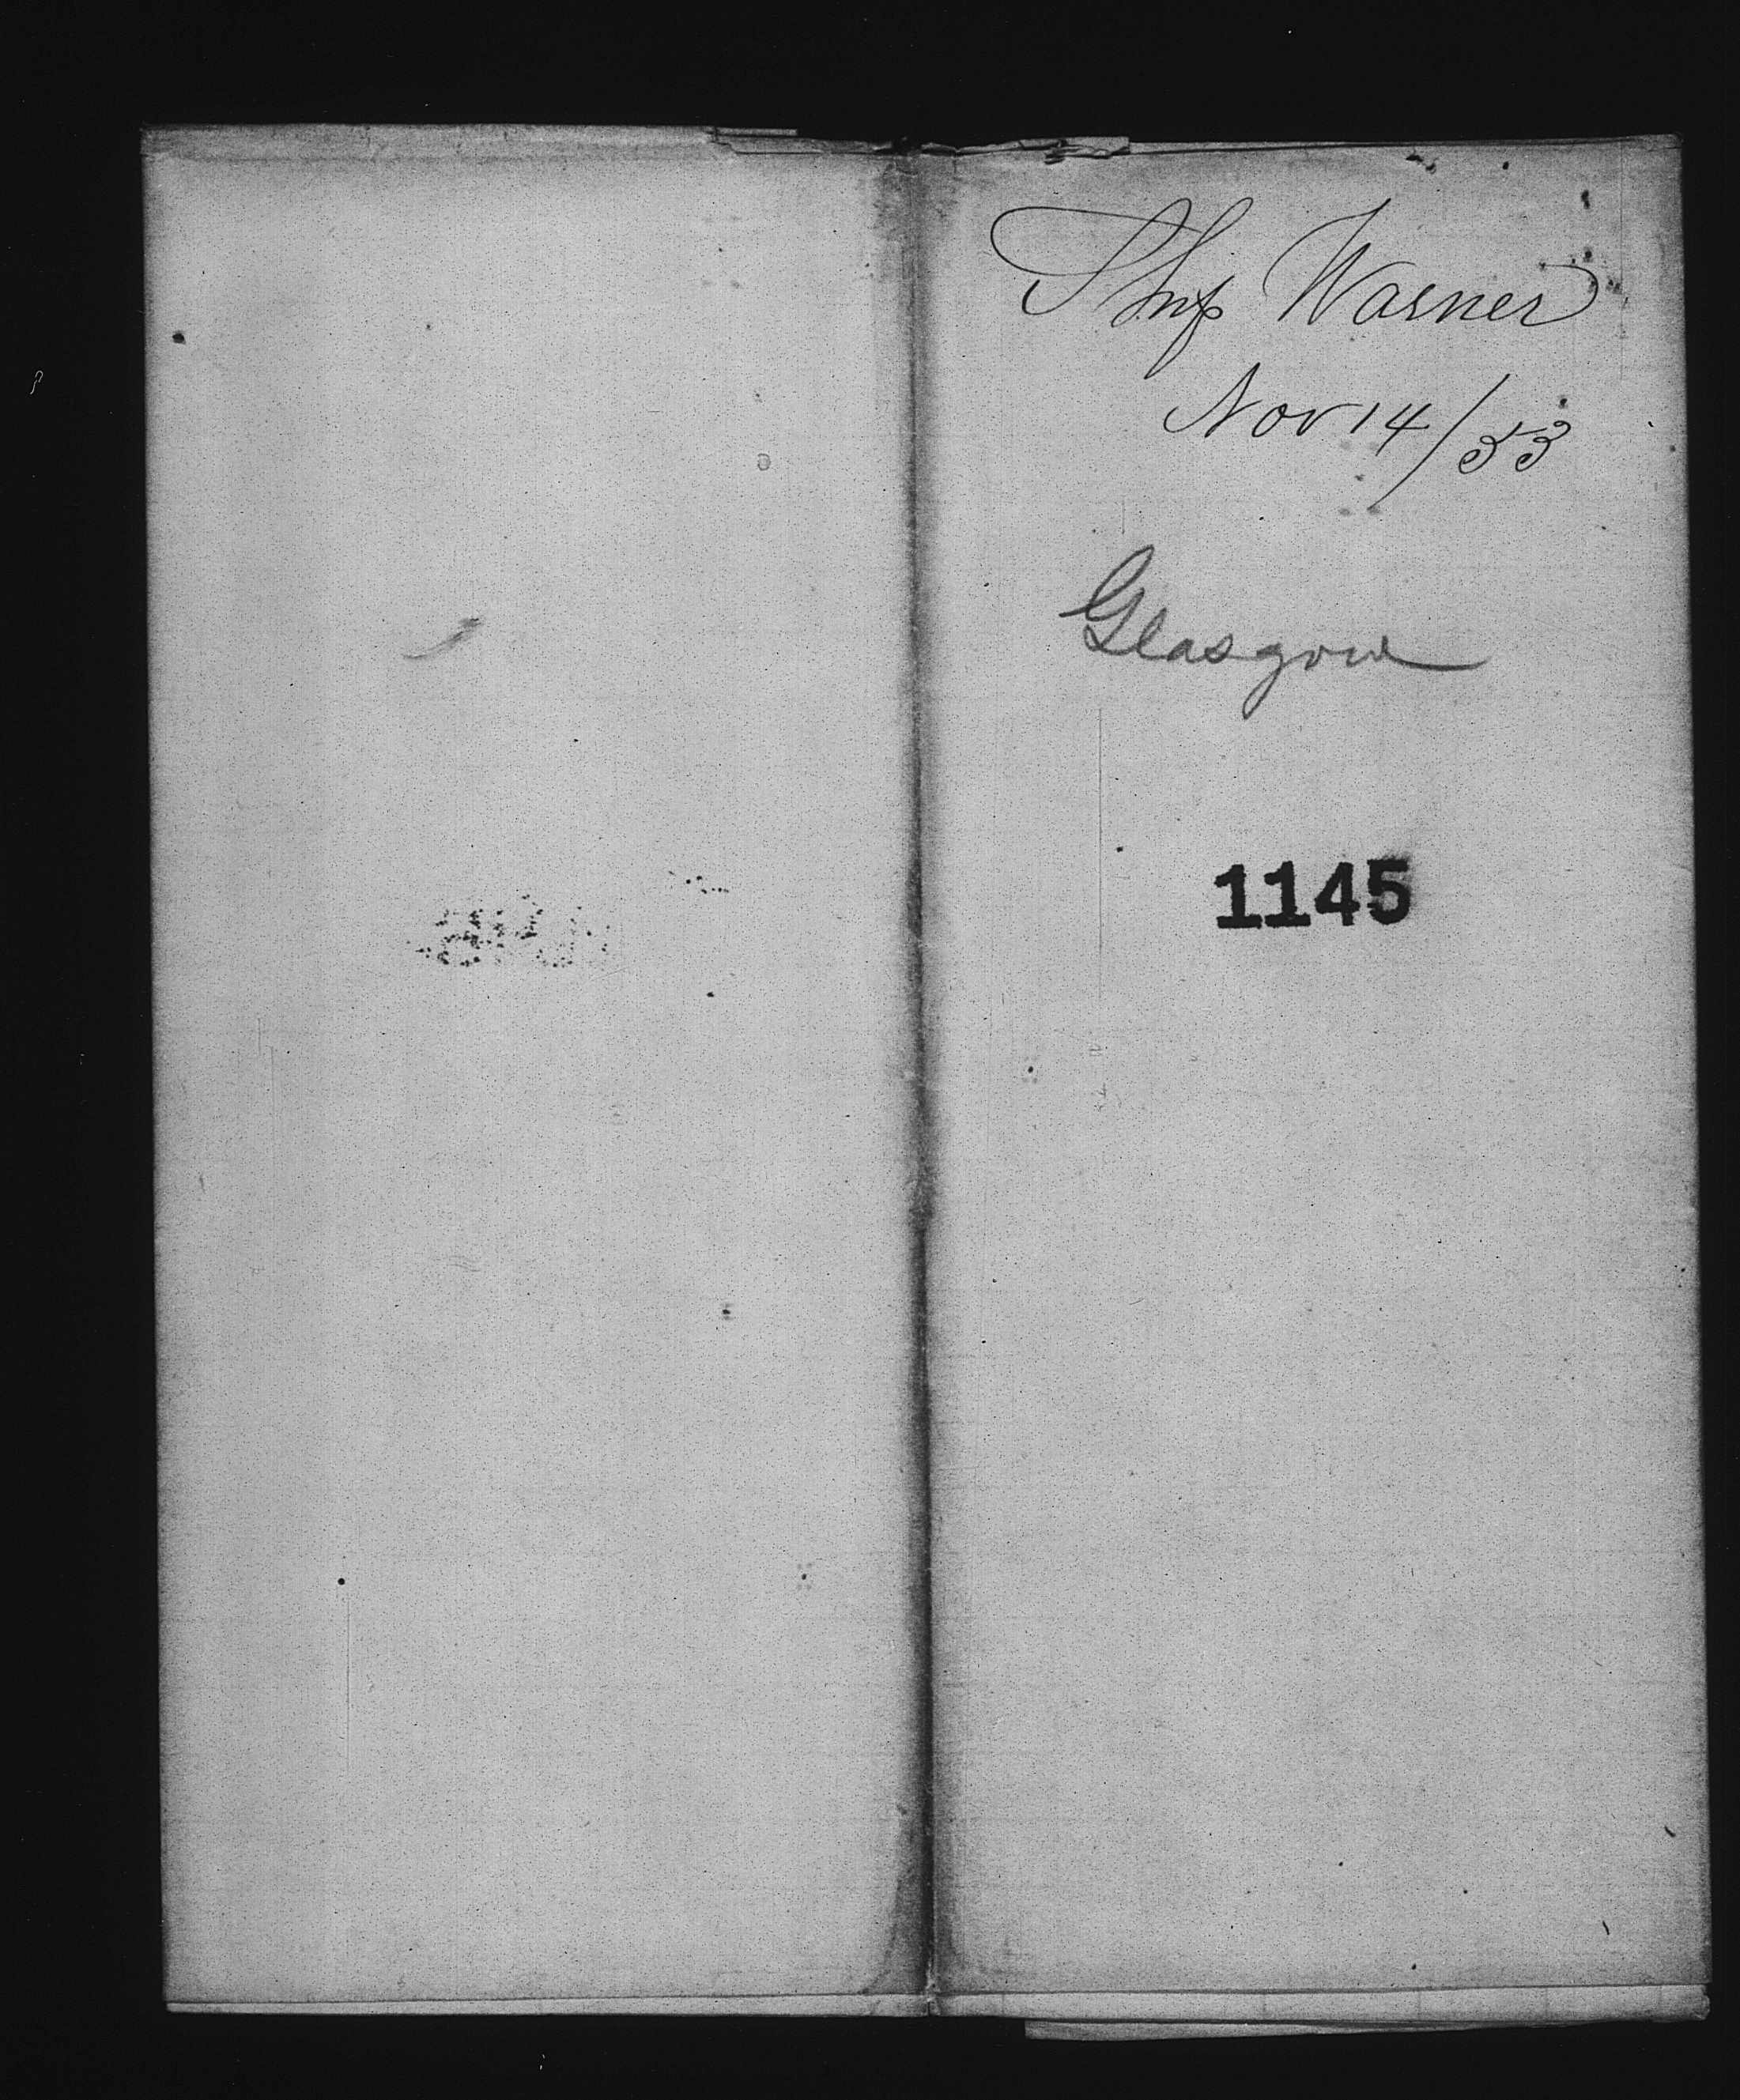 Ship Warner
Nov 14/53
Glasgow
1145